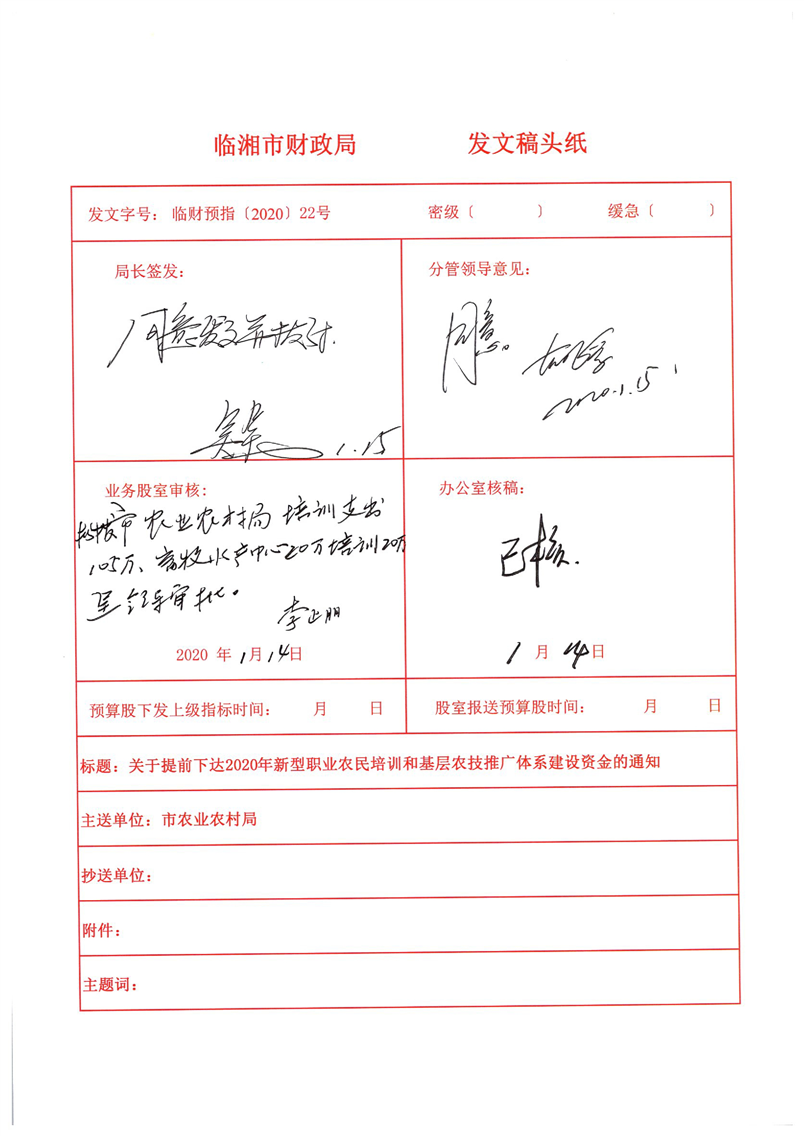 临湘市财政局 发文稿头纸
发文字号: 临财预指〔2020〕22号 密级〔 〕 缓急〔 〕
局长签发:
同意发文并拨付.
1.15
分管领导意见:
同意。
2020.1.15
业务股室审核:
拟拨市农业农村局培训支出
105万、畜牧水产中心20万培训20万
呈领导审批。
李正朋
2020 年 1月 14日
办公室核稿:
已核.
1 月 14日
预算股下发上级指标时间: 月 日
股室报送预算股时间: 月 日
标题: 关于提前下达2020年新型职业农民培训和基层农技推广体系建设资金的通知
主送单位: 市农业农村局
抄送单位:
附件:
主题词: